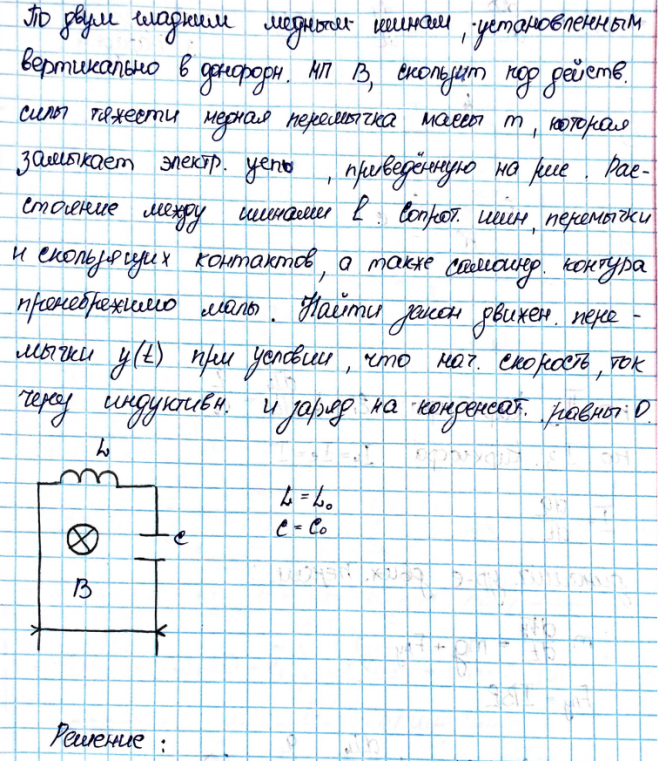 По двум гладким медным шинам, установленным
вертикально в однородн. МП B, скользит под действ.
силы тяжести медная перемычка массы m, которая
замыкает электр. цепь, приведённую на рис. Рас-
стояние между шинами l. Сопрот. шин, перемычки
и скользящих контактов, а также самоинд. контура
пренебрежимо малы. Найти закон движен. пере-
мычки y(t) при условии, что нач. скорость, ток
через индуктивн. и заряд на конденсат. равны 0.
L
L = L₀
C = C₀
C
B
Решение: